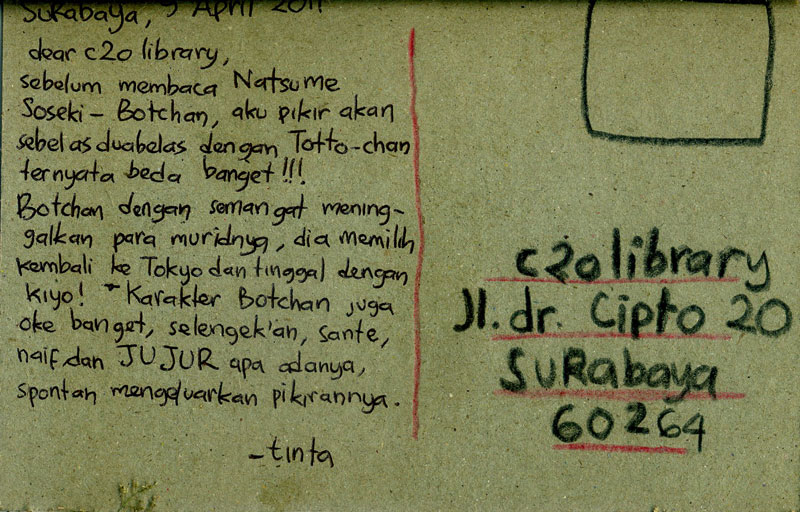 Surabaya, 5 April 2011
dear c2o library,
sebelum membaca Natsume
Soseki - Botchan, aku pikir akan
sebelas duabelas dengan Totto-chan
ternyata beda banget!!!
Botchan dengan semangat mening-
galkan para muridnya, dia memilih
kembali ke Tokyo dan tinggal dengan
kiyo! Karakter Botchan juga
oke banget, selengek'an, sante,
naif dan JUJUR apa adanya,
spontan mengeluarkan pikirannya.
-tinta
c2o library
Jl. dr. Cipto 20
Surabaya
60264